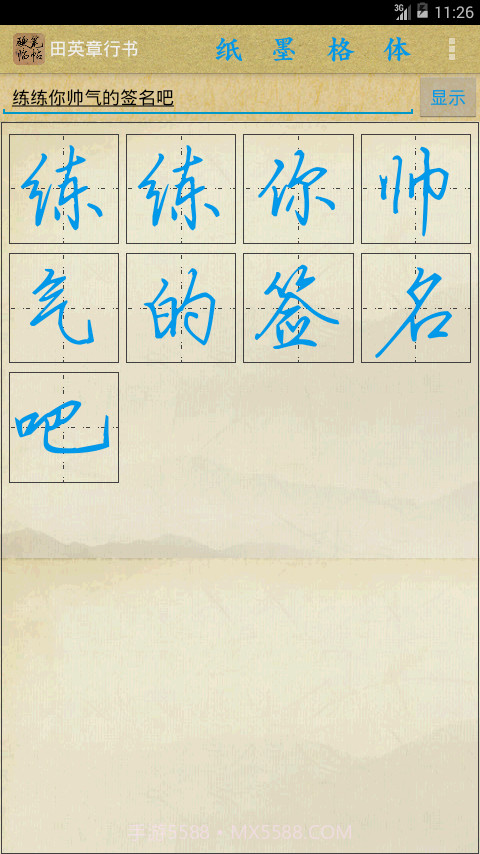 3G 11:26
硬笔临帖 田英章行书 纸 墨 格 体
练练你帅气的签名吧 显示
练练你帅
气的签名
吧
手游5588·MX5588.COM